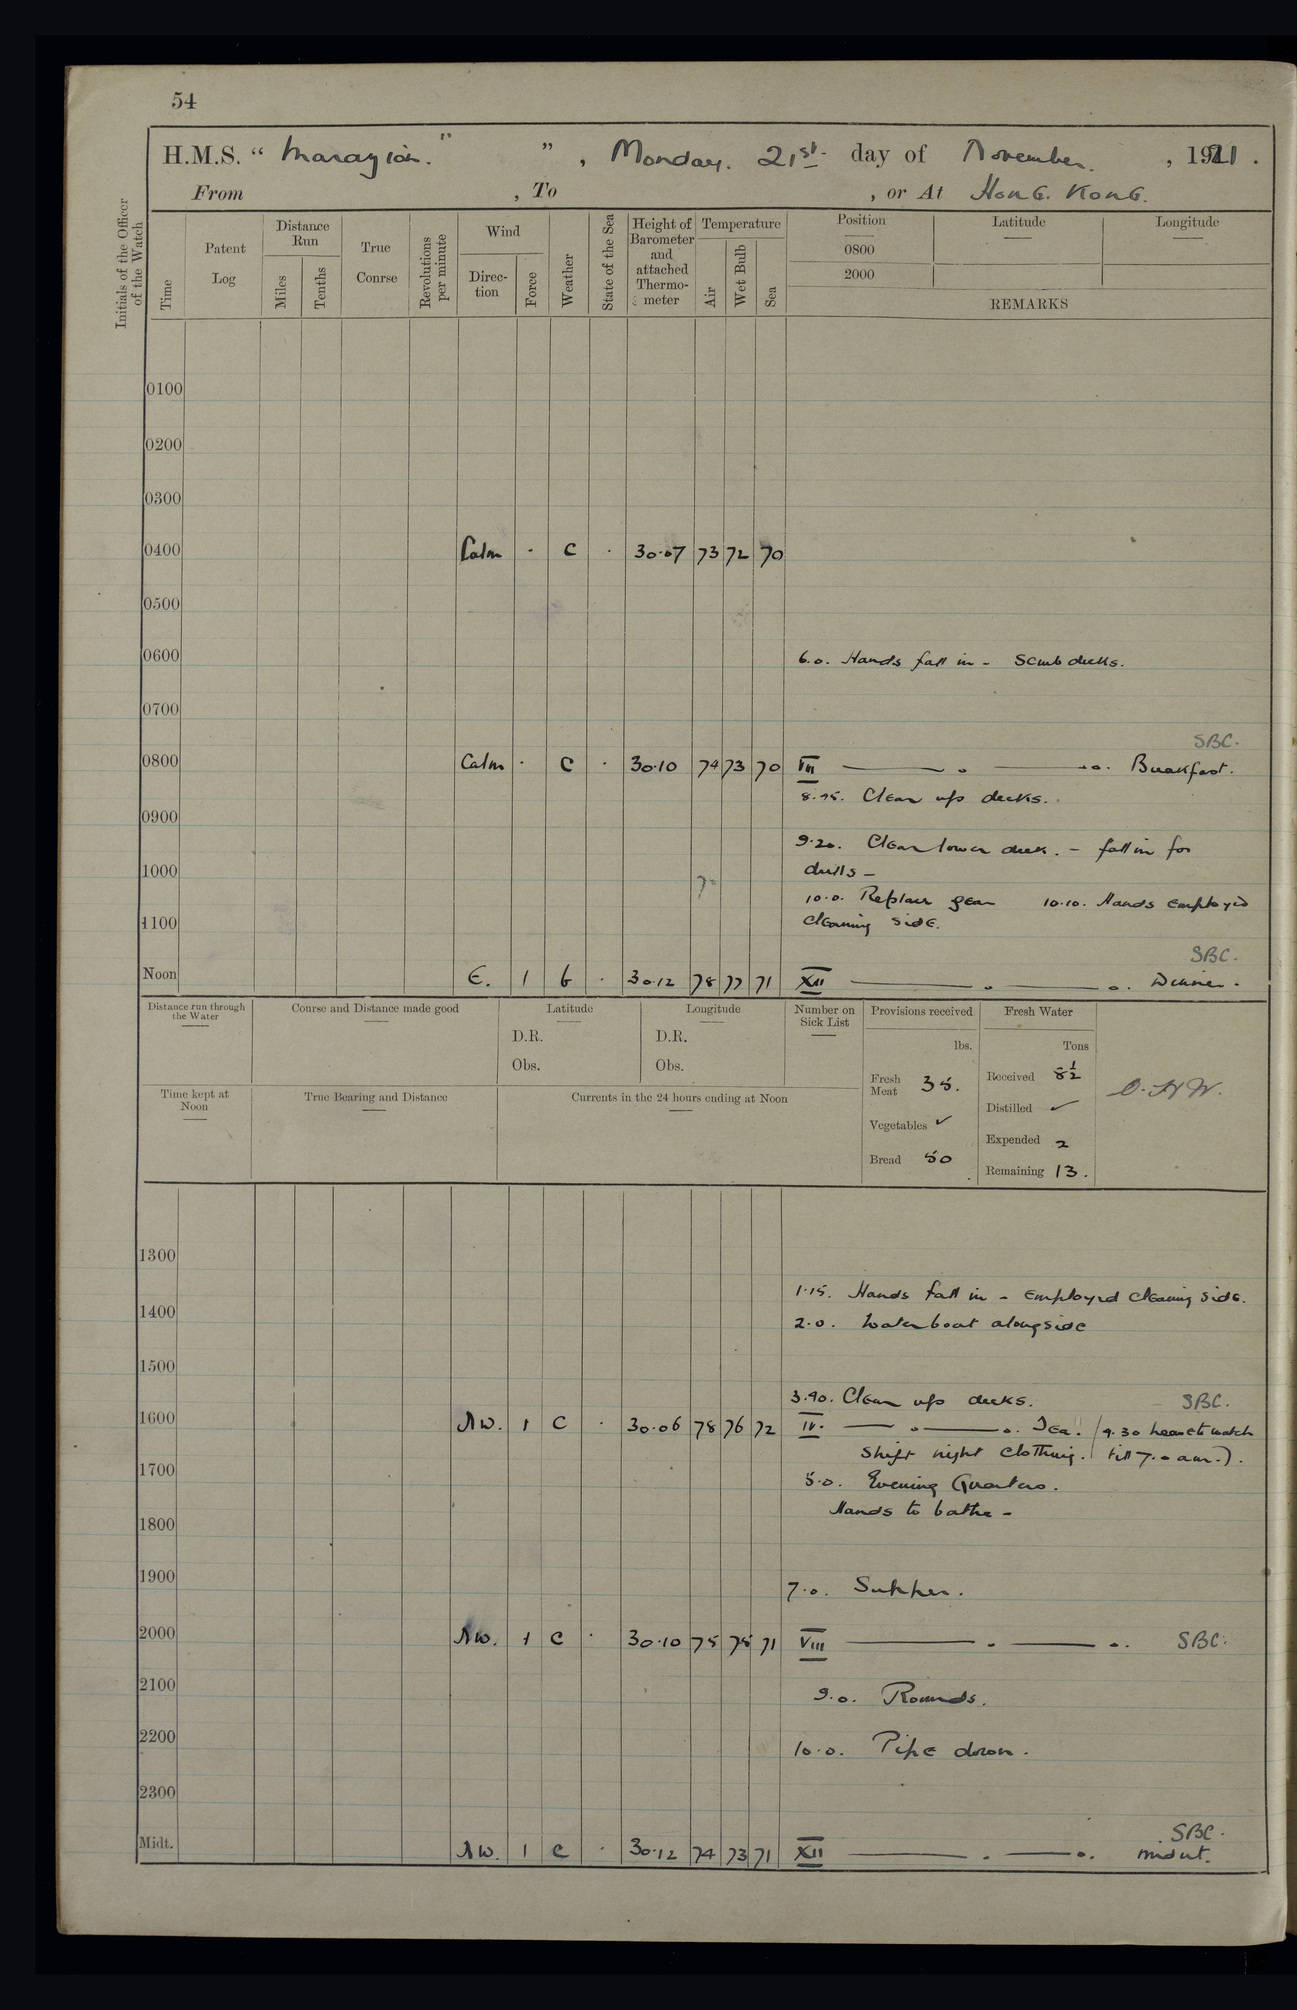 54
H.M.S. “ Marazion. ” ” , Monday. 21st. day of November. , 1921 .
From , To , or At Hong. Kong.
Initials of the Officer of the Watch
Time
Patent Log
Distance Run
Miles
Tenths
True Course
Revolutions per minute
Wind
Direc-tion
Force
Weather
State of the Sea
Height of Barometer and attached Thermo-meter
Temperature
Air
Wet Bulb
Sea
Position
0800
2000
Latitude
Longitude
REMARKS
0100
0200
0300
0400 Calm · C · 30.07 73 72 70
0500
0600 6.0. Hands fall in - Scrub decks.
0700
SBC.
0800 Calm · C · 30.10 74 73 70 VIII Breakfast.
8.45. Clear up decks.
0900
9.20. Clear lower deck. - fall in for
drills -
1000
10.0. Replace gear 10.10. Hands employed
1100 cleaning side.
SBC.
Noon E. 1 b · 30.12 78 77 71 XII Dinner.
Distance run through the Water
Course and Distance made good
Latitude
D.R.
Obs.
Longitude
D.R.
Obs.
Number on Sick List
Provisions received
lbs.
Fresh Meat 35.
Vegetables ✓
Bread 50
Fresh Water
Tons
Received 8½
Distilled ✓
Expended 2
Remaining 13.
O.H.W.
Time kept at Noon
True Bearing and Distance
Currents in the 24 hours ending at Noon
1300
1.15. Hands fall in - employed cleaning side.
1400
2.0. Water boat alongside
1500
3.40. Clear up decks. SBC.
1600 NW. 1 C · 30.06 78 76 72 IV. Tea. (4.30 hands to watch
Shift night clothing. till 7.0 am.).
1700
5.0. Evening Quarters.
Hands to bathe -
1800
1900
7.0. Supper.
2000 NW. 1 C · 30.10 75 75 71 VIII SBC.
2100
9.0. Rounds.
2200
10.0. Pipe down.
2300
SBC.
Midt. NW. 1 C · 30.12 74 73 71 XII midnt.